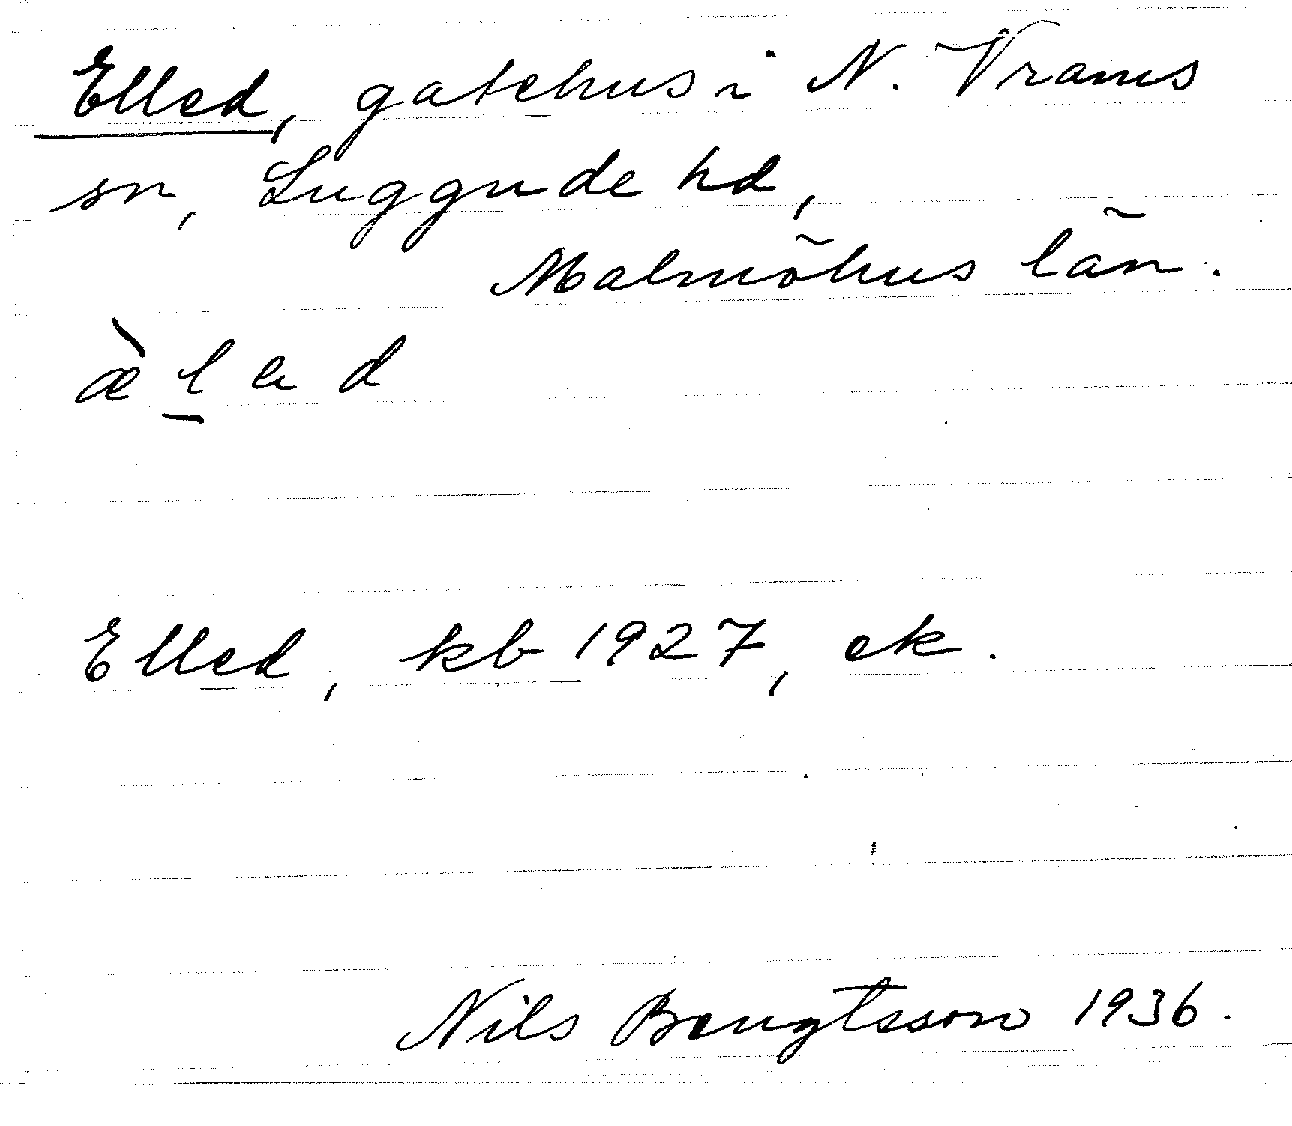 Elled, gatehus i N. Vrams
sn, Luggude hd,
Malmöhus län.
æ̀ l̲ e d
Elled, kb 1927, ek.
Nils Bengtsson 1936.